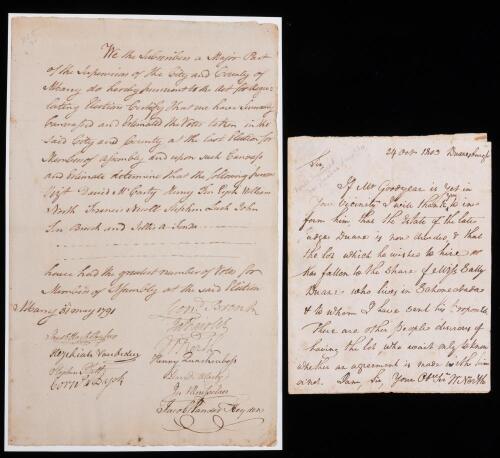 We the Subscribers a Major Part
of the Supervisors of the City and County of
Albany do hereby pursuant to the Act for Regu-
lating Elections Certify that we have
Canvassed and Estimated the Votes taken in the
Said City and County at the last Election for
Members of Assembly and upon such Canvass
and Estimate determine that the following persons
Vizt David McCarty Henry
William
North Francis Nicoll Stephen Lush John
Van
have had the greatest number of Votes for
Members of Assembly at the said Election
Albany 31 May 1791
Cornd Bronck
Hezekiah Van Orden
Stephen Platt
Henry Quackenboss
Jacob Vander Heyden
24 Oct. 1803 Duanesburgh
Sir,
If Mr Goodyear is yet in
Your Vicinity I will thank you to in-
form him that the estate of the late
Judge Duane is now divided, & that
the lot which he wishes to hire
has fallen to the share of Miss Sally
Duane who lives in Schenectada
& to whom I have sent his proposals
There are other People desirous of
having the lot who wait only to know
whether an agreement is made with him
or not. I am, Sir, Your Ob Sr W North